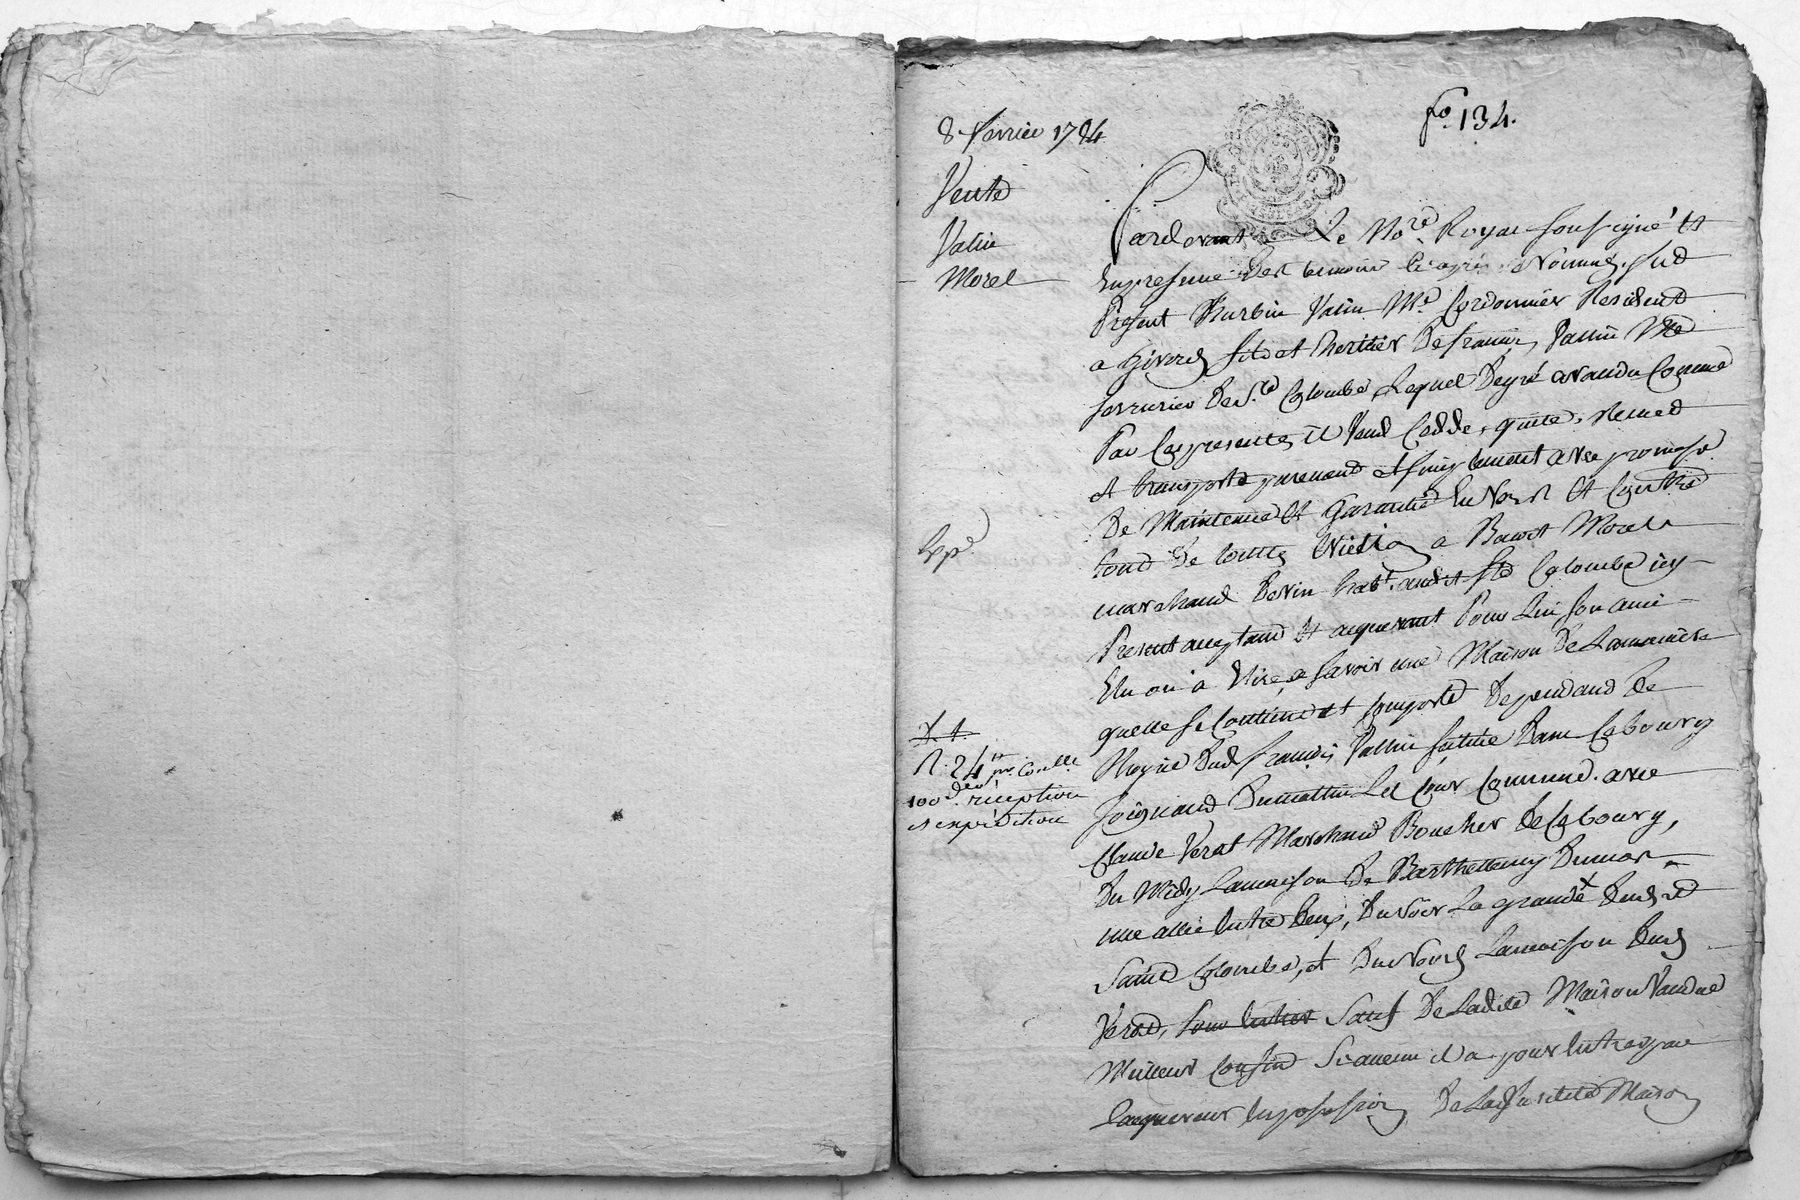 8 février 1784
fo. 134.
Vente
Vallin
Morel
Pardevant Le No.re Royal soussigné Et
En presence des temoins cy apres Nommés, fud
Present Vallin M.e Cordonnier Resident
a Givors fils et heritier De françois Vallin M.e
serrurier De S.te Colombe, Lequel De gré a vandu Comme
Par Ces presentes il Vend Cedde, quitte, Remet
et transporte purement et simplement avec promesse
De Maintenue Et Garantie Envers Et Contre
tous De toutte Eviction a Benoit Morel
marchand De vin hab.t audit Ste Colombe icy
Present acceptand Et acquerant Pour Lui son ami
Elu ou a Elire, a savoir une Maison De La maniere
quelle se Contient et comporte Dependand De
Dud françois Vallin scittuée Dans Ce bourg
Joignand Du mattin La Cour Commune avec
Claude Verat Marchand Boucher De Ce bourg,
Du Midy La maison De Barthellemy
une allée Entre Deux, Du soir La grande x Dud
Saint Colombe, et Du Nord La maison Dud
Verat, sauf De Ladite Maison Vandue
Meilleur Confin Si aucun il a pour Entrer par
L'acquereur En possession De La susditte Maison
Exp.é
R. 24 tt pr. Con.lle
100.d réception
et expedition